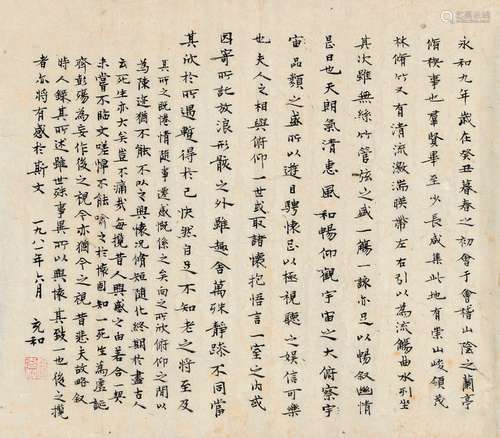 永和九年歲在癸丑暮春之初會于會稽山陰之蘭亭
脩稧事也羣賢畢至少長咸集此地有崇山峻領茂
林脩竹又有清流激湍暎帶左右引以為流觴曲水列坐
其次雖無絲竹管弦之盛一觴一詠亦足以暢叙幽情
是日也天朗氣清惠風和暢仰觀宇宙之大俯察宇
宙品類之盛所以遊目騁懷足以極視聽之娛信可樂
也夫人之相與俯仰一世或取諸懷抱悟言一室之内或
因寄所託放浪形骸之外雖趣舍萬殊靜躁不同當
其欣於所遇暫得於己快然自足不知老之將至及
其所之既惓情隨事遷感慨係之矣向之所欣俛仰之閒以
為陳迹猶不能不以之興懷況脩短隨化終期於盡古人
云死生亦大矣豈不痛哉每攬昔人興感之由若合一契
未嘗不臨文嗟悼不能喻之於懷固知一死生為虛誕
齊彭殤為妄作後之視今亦猶今之視昔悲夫故略叙
時人錄其所述雖世殊事異所以興懷其致一也後之攬
者亦將有感於斯文 一九八 年六月 充和